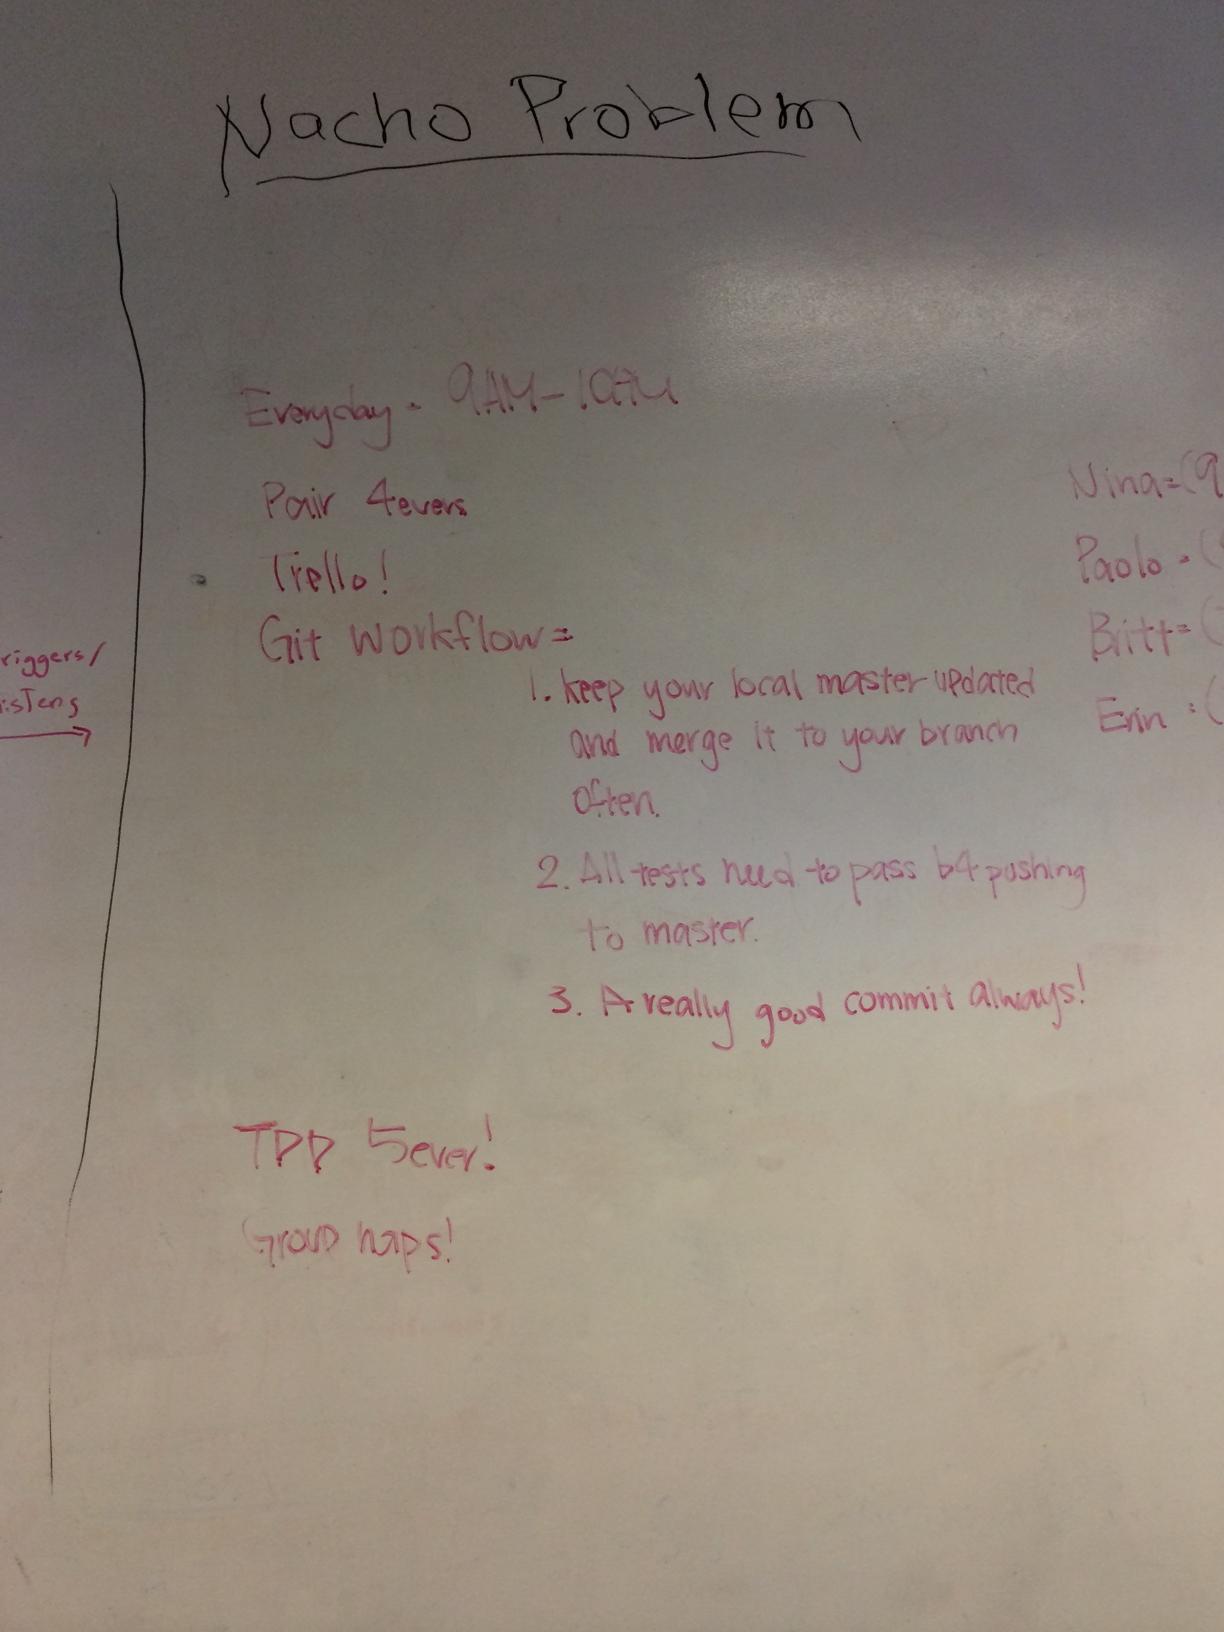 Nacho Problem
Everyday - 9AM-10PM
Pair 4evers
Trello!
Git Workflow=
1. keep your local master updated
and merge it to your branch
often.
2. All tests need to pass b4 pushing
to master.
3. A really good commit always!
TDD 5ever!
Group naps!
riggers/
isTens
Nina=(9
Paolo - (
Britt= (
Erin : (